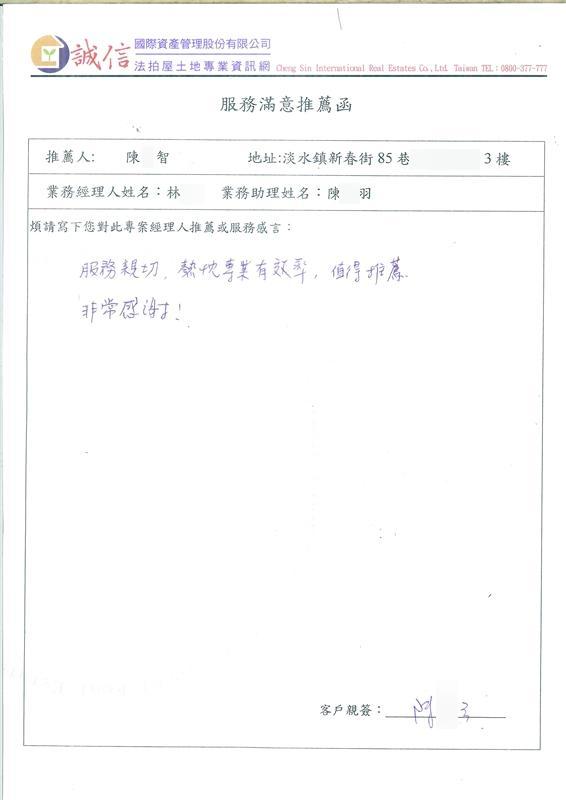 誠信 國際資產管理股份有限公司
法拍屋土地專業資訊網 Cheng Sin International Real Estates Co., Ltd. Taiwan TEL：0800-377-777
服務滿意推薦函
推薦人: 陳 智 地址:淡水鎮新春街 85 巷 3 樓
業務經理人姓名：林 業務助理姓名：陳 羽
煩請寫下您對此專案經理人推薦或服務感言：
服務親切，熱忱專業有效率，值得推薦
非常感謝！
客戶親簽：